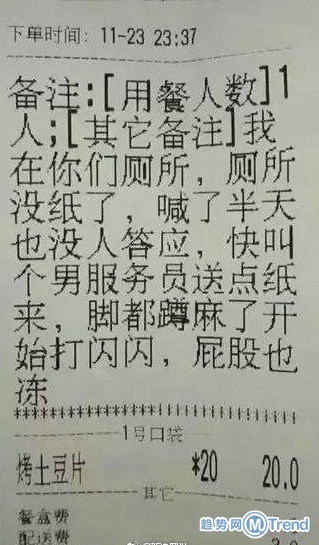 下单时间: 11-23 23:37
备注:[用餐人数]1
人;[其它备注]我
在你们厕所，厕所
没纸了，喊了半天
也没人答应，快叫
个男服务员送点纸
来，脚都蹲麻了开
始打闪闪，屁股也
冻
********************************
1号口袋
烤土豆片 *20 20.0
其它
餐盒费
配送费
趋势网 MTrend